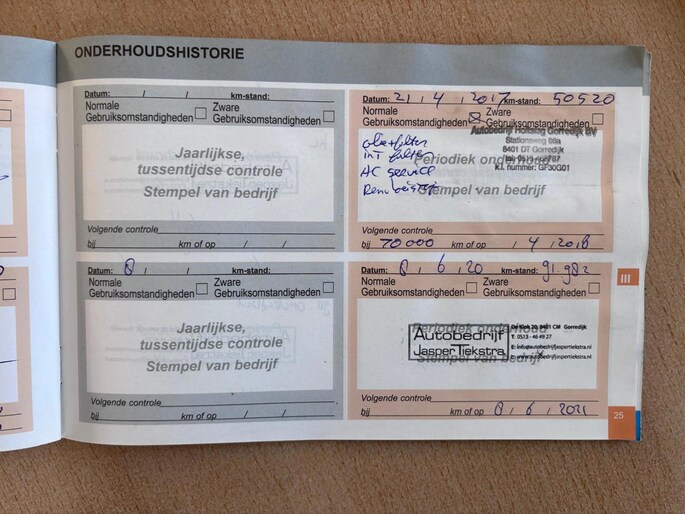 ONDERHOUDSHISTORIE
Datum: / / km-stand:
Normale Gebruiksomstandigheden
Zware Gebruiksomstandigheden
Jaarlijkse,
tussentijdse controle
Stempel van bedrijf
Volgende controle
bij km of op / /
Datum: 21 / 4 / 2017 km-stand: 50520
Normale Gebruiksomstandigheden
Zware Gebruiksomstandigheden
Autobedrijf Gorredijk BV
Stationsweg
8401 DT Gorredijk
olie+filter
int filter
AC service
Remvloeistof
Periodiek onderhoud
Stempel van bedrijf
Volgende controle
bij 70000 km of op / 4 / 2018
Datum: 8 / / km-stand:
Normale Gebruiksomstandigheden
Zware Gebruiksomstandigheden
Jaarlijkse,
tussentijdse controle
Stempel van bedrijf
Volgende controle
bij km of op / /
Datum: 8 / 6 / 20 km-stand: 91.982
Normale Gebruiksomstandigheden
Zware Gebruiksomstandigheden
Periodiek onderhoud
Autobedrijf
Jasper Tiekstra
20, 8401 CM Gorredijk
T: 0513 - 46 49 27
E: info@autobedrijfjaspertiekstra.nl
I: www.autobedrijfjaspertiekstra.nl
Stempel van bedrijf
Volgende controle
bij km of op 8 / 6 / 2021
III
25